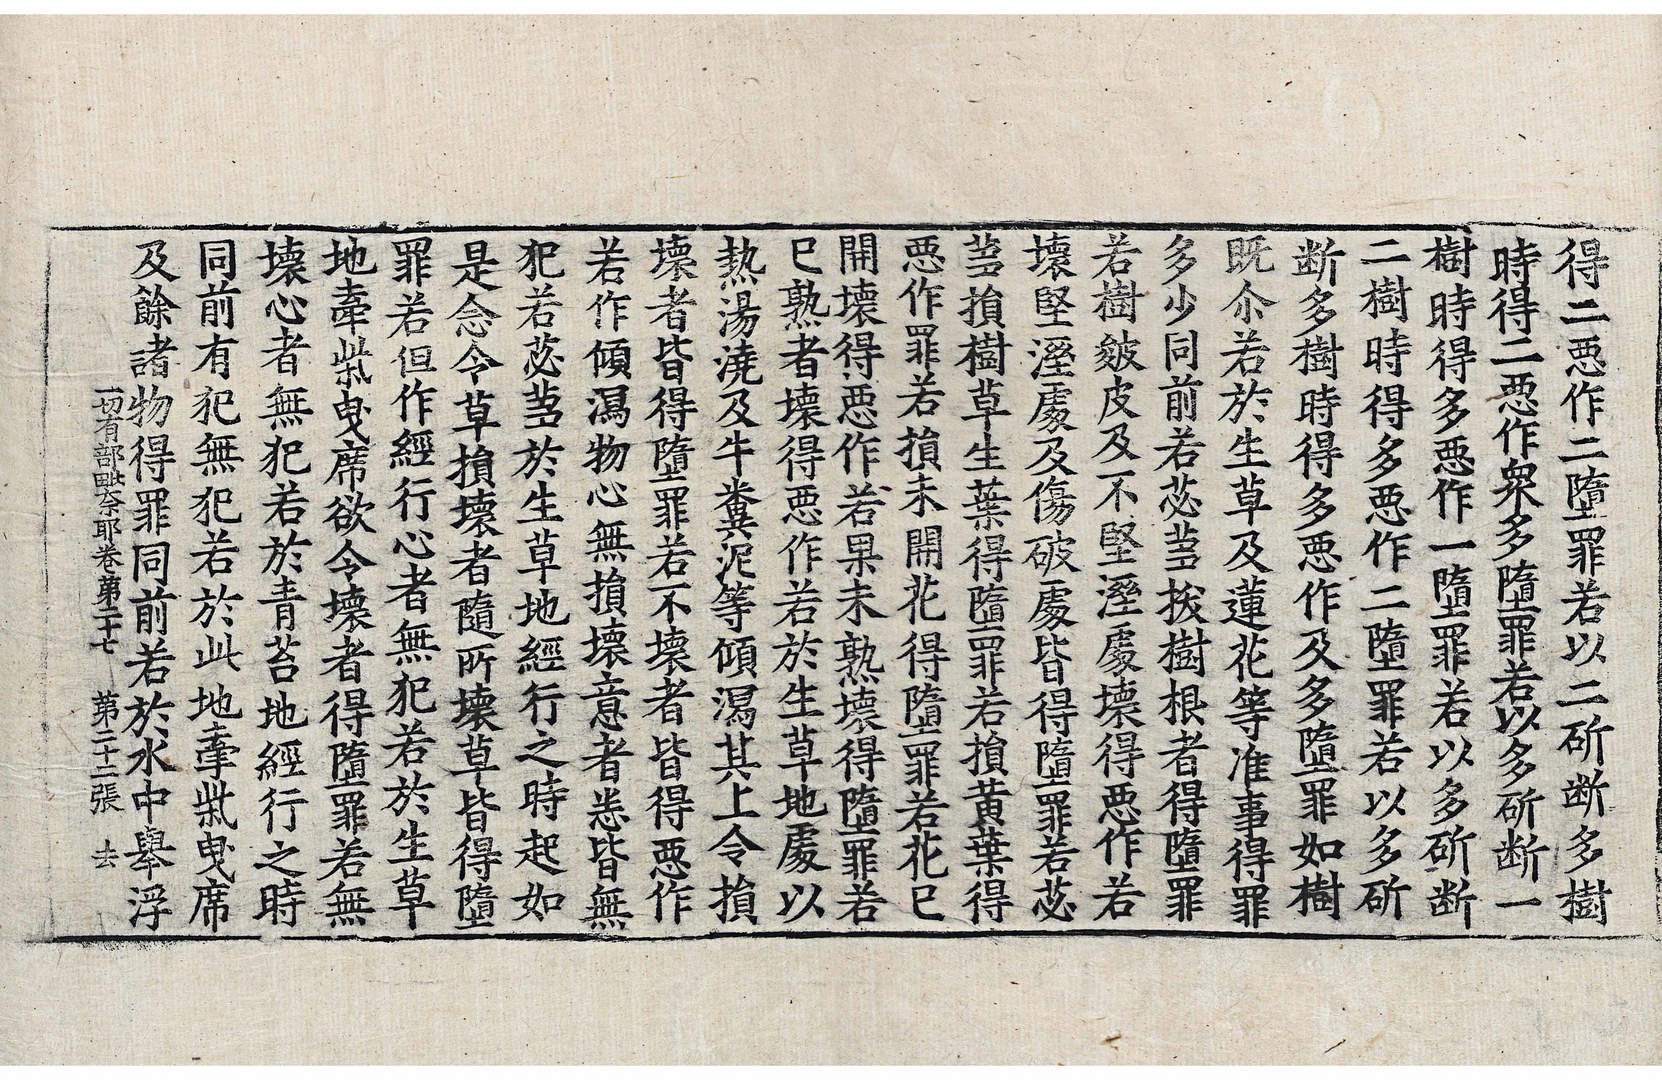 得二惡作二墮罪若以二斫斷多樹
時得二惡作衆多墮罪若以多斫断一
樹時得多惡作一墮罪若以多斫断
二樹時得多惡作二墮罪若以多斫
断多樹時得多惡作及多墮罪如樹
既尒若於生草及蓮花等准事得罪
多少同前若苾芻拔樹根者得墮罪
若樹皴皮及不堅溼處壞得惡作若
壞堅溼處及傷破處皆得墮罪若苾
芻損樹草生葉得墮罪若損黃葉得
惡作罪若損未開花得墮罪若花已
開壞得惡作若果未熟壞得墮罪若
已熟者壞得惡作若於生草地處以
熱湯澆及牛糞泥等傾瀉其上令損
壞者皆得墮罪若不壞者皆得惡作
若作傾瀉物心無損壞意者悉皆無
犯若苾芻於生草地經行之時起如
是念令草損壞者隨所壞草皆得墮
罪若但作經行心者無犯若於生草
地牽柴曳席欲令壞者得墮罪若無
壞心者無犯若於青苔地經行之時
同前有犯無犯若於此地牽柴曳席
及餘諸物得罪同前若於水中舉浮
一切有部毗奈耶卷第二十七 第二十二張 去